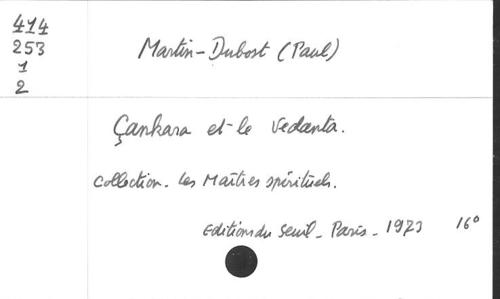 414
253
1
2
Martin-Dubost (Paul)
Çankara et le Vedanta.
Collection. Les Maîtres spirituels.
Editions du Seuil_ Paris_ 1973 16°